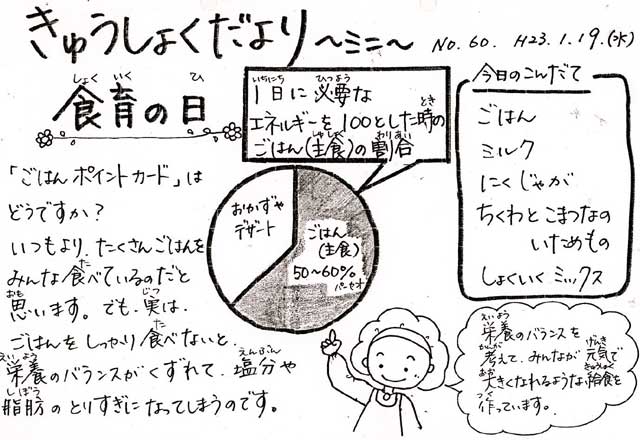 きゅうしょくだより ～ミニ～ No. 60. H23. 1. 19. (水)
食育の日
しょく いく ひ
1日に必要な
いちにち ひつよう
エネルギーを100とした時の
とき
ごはん(主食)の割合
しゅしょく わりあい
今日のこんだて
ごはん
ミルク
にくじゃが
ちくわとこまつなの
いためもの
しょくいくミックス
「ごはんポイントカード」は
どうですか?
いつもより、たくさんごはんを
みんな食べているのだと
た
思います。でも、実は、
おも じつ
ごはんをしっかり食べないと、
た
栄養のバランスがくずれて、塩分や
えいよう えんぶん
脂肪のとりすぎになってしまうのです。
しぼう
おかずや
デザート
ごはん
(主食)
50～60%
パーセント
栄養のバランスを
えいよう
考えて、みんなが元気で
かんが げんき
大きくなれるような給食を
おお きゅうしょく
作っています。
つく